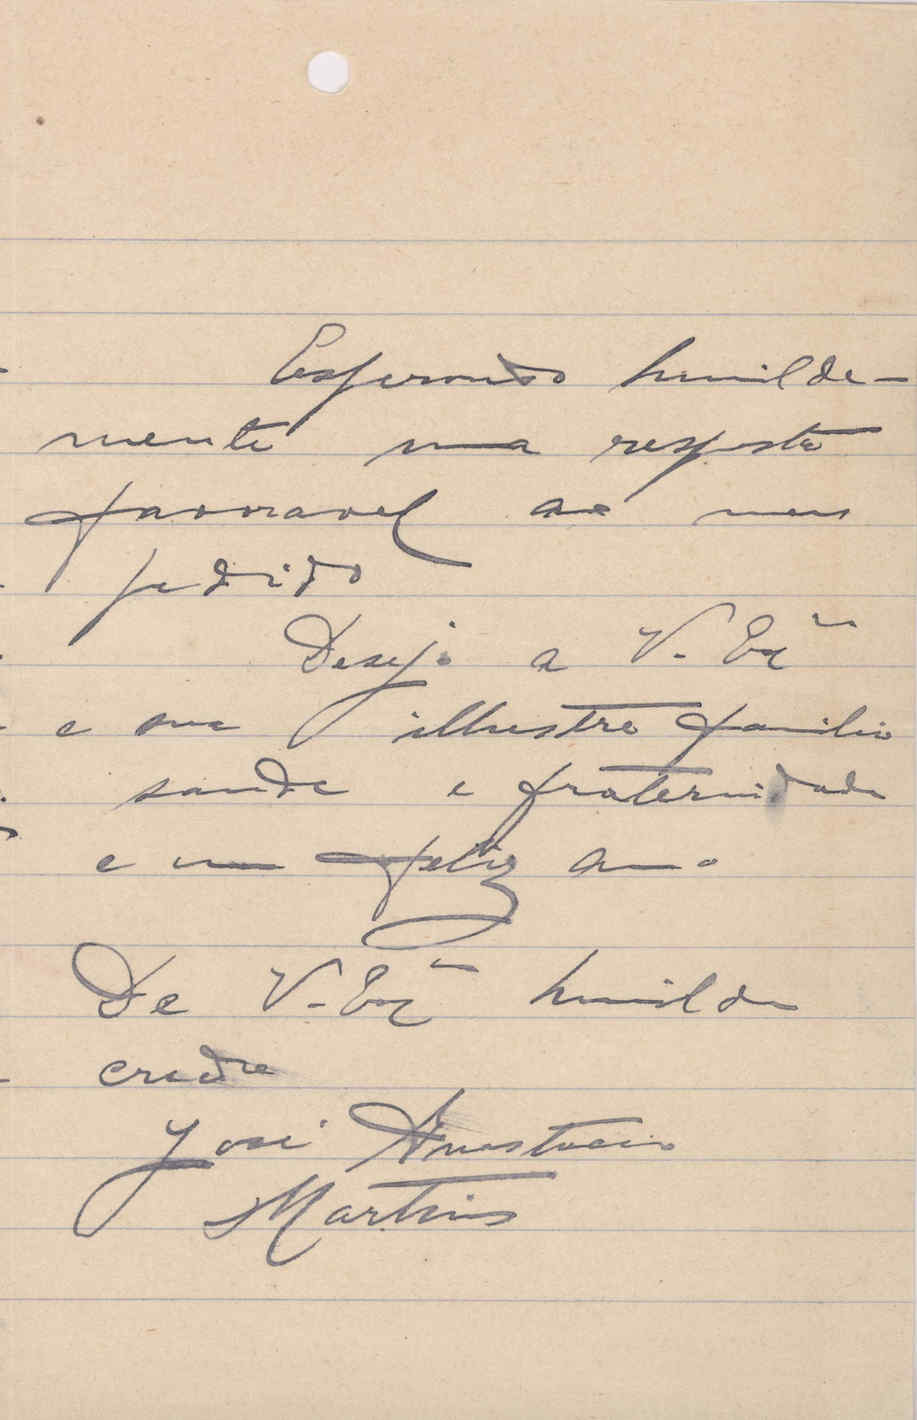 Esperando humilde-
mente uma resposta
favoravel ao meu
pedido
Desejo a V. Exª
e sua illustre familia
saude e fraternidade
e um feliz anno
De V. Exª humilde
creado
José Anastacio
Martins